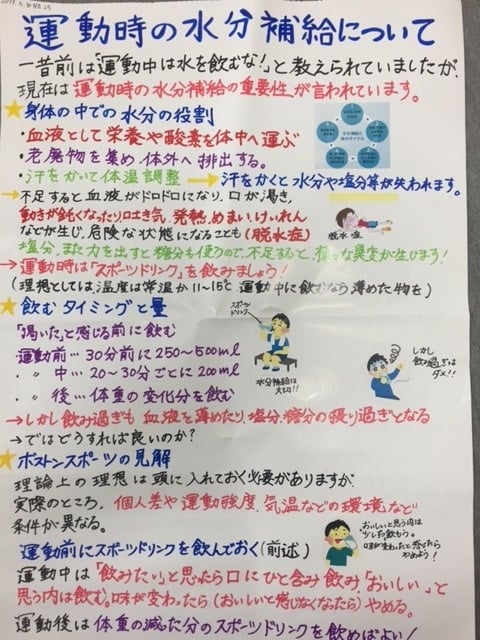 運動時の水分補給について
一昔前は「運動中は水を飲むな!」と教えられていましたが、
現在は運動時の水分補給の重要性が言われています。
★身体の中での水分の役割
・血液として栄養や酸素を体中へ運ぶ
・老廃物を集め、体外へ排出する。
・汗をかいて体温調整 → 汗をかくと水分や塩分等が失われます。
→不足すると血液がドロドロになり、口が渇き、
動きが鈍くなったり、口土き気、発熱、めまい、けいれん
などが生じ、危険な状態になることも(脱水症)
脱水症
塩分、また力を出すと糖分も使うので、不足すると、様々な異変が生じます!
→運動時は「スポーツドリンク」を飲みましょう!
(理想としては、温度は常温か11~15℃ 運動中に飲むなら薄めた物を)
★飲むタイミングと量
スポーツドリンク
「渇いた」と感じる前に飲む
運動前…30分前に250~500ml
〃 中…20~30分ごとに200ml
〃 後…体重の変化分を飲む
水分補給は
大切!!
しかし
飲み過ぎは
ダメ!!
→しかし飲み過ぎも血液を薄めたり、塩分、糖分の摂り過ぎとなる
→ではどうすれば良いのか?
★ボストンスポーツの見解
理論上の理想は頭に入れておく必要がありますが、
実際のところ、個人差や運動強度、気温などの環境など
条件が異なる。
おいしいと思う内は
少しずつ飲もう。
口味が変わったと感じたら
やめよう!
運動前にスポーツドリンクを飲んでおく(前述)
運動中は「飲みたい」と思ったら口にひと含み飲み、「おいしい」と
思う内は飲む。口味が変わったら(おいしいと感じなくなったら)やめる。
運動後は体重の減った分のスポーツドリンクを飲めばよい